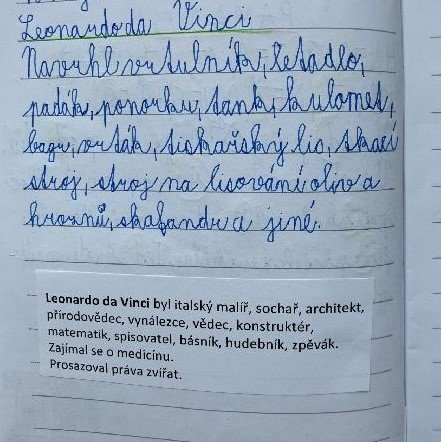 Leonardo da Vinci
Navrhl vrtulník, letadlo,
padák, ponorku, tank, kulomet,
bagr, vrták, tiskařský lis, tkací
stroj, stroj na lisování oliv a
hroznů, skafandr a jiné.
Leonardo da Vinci byl italský malíř, sochař, architekt,
přírodovědec, vynálezce, vědec, konstruktér,
matematik, spisovatel, básník, hudebník, zpěvák.
Zajímal se o medicínu.
Prosazoval práva zvířat.